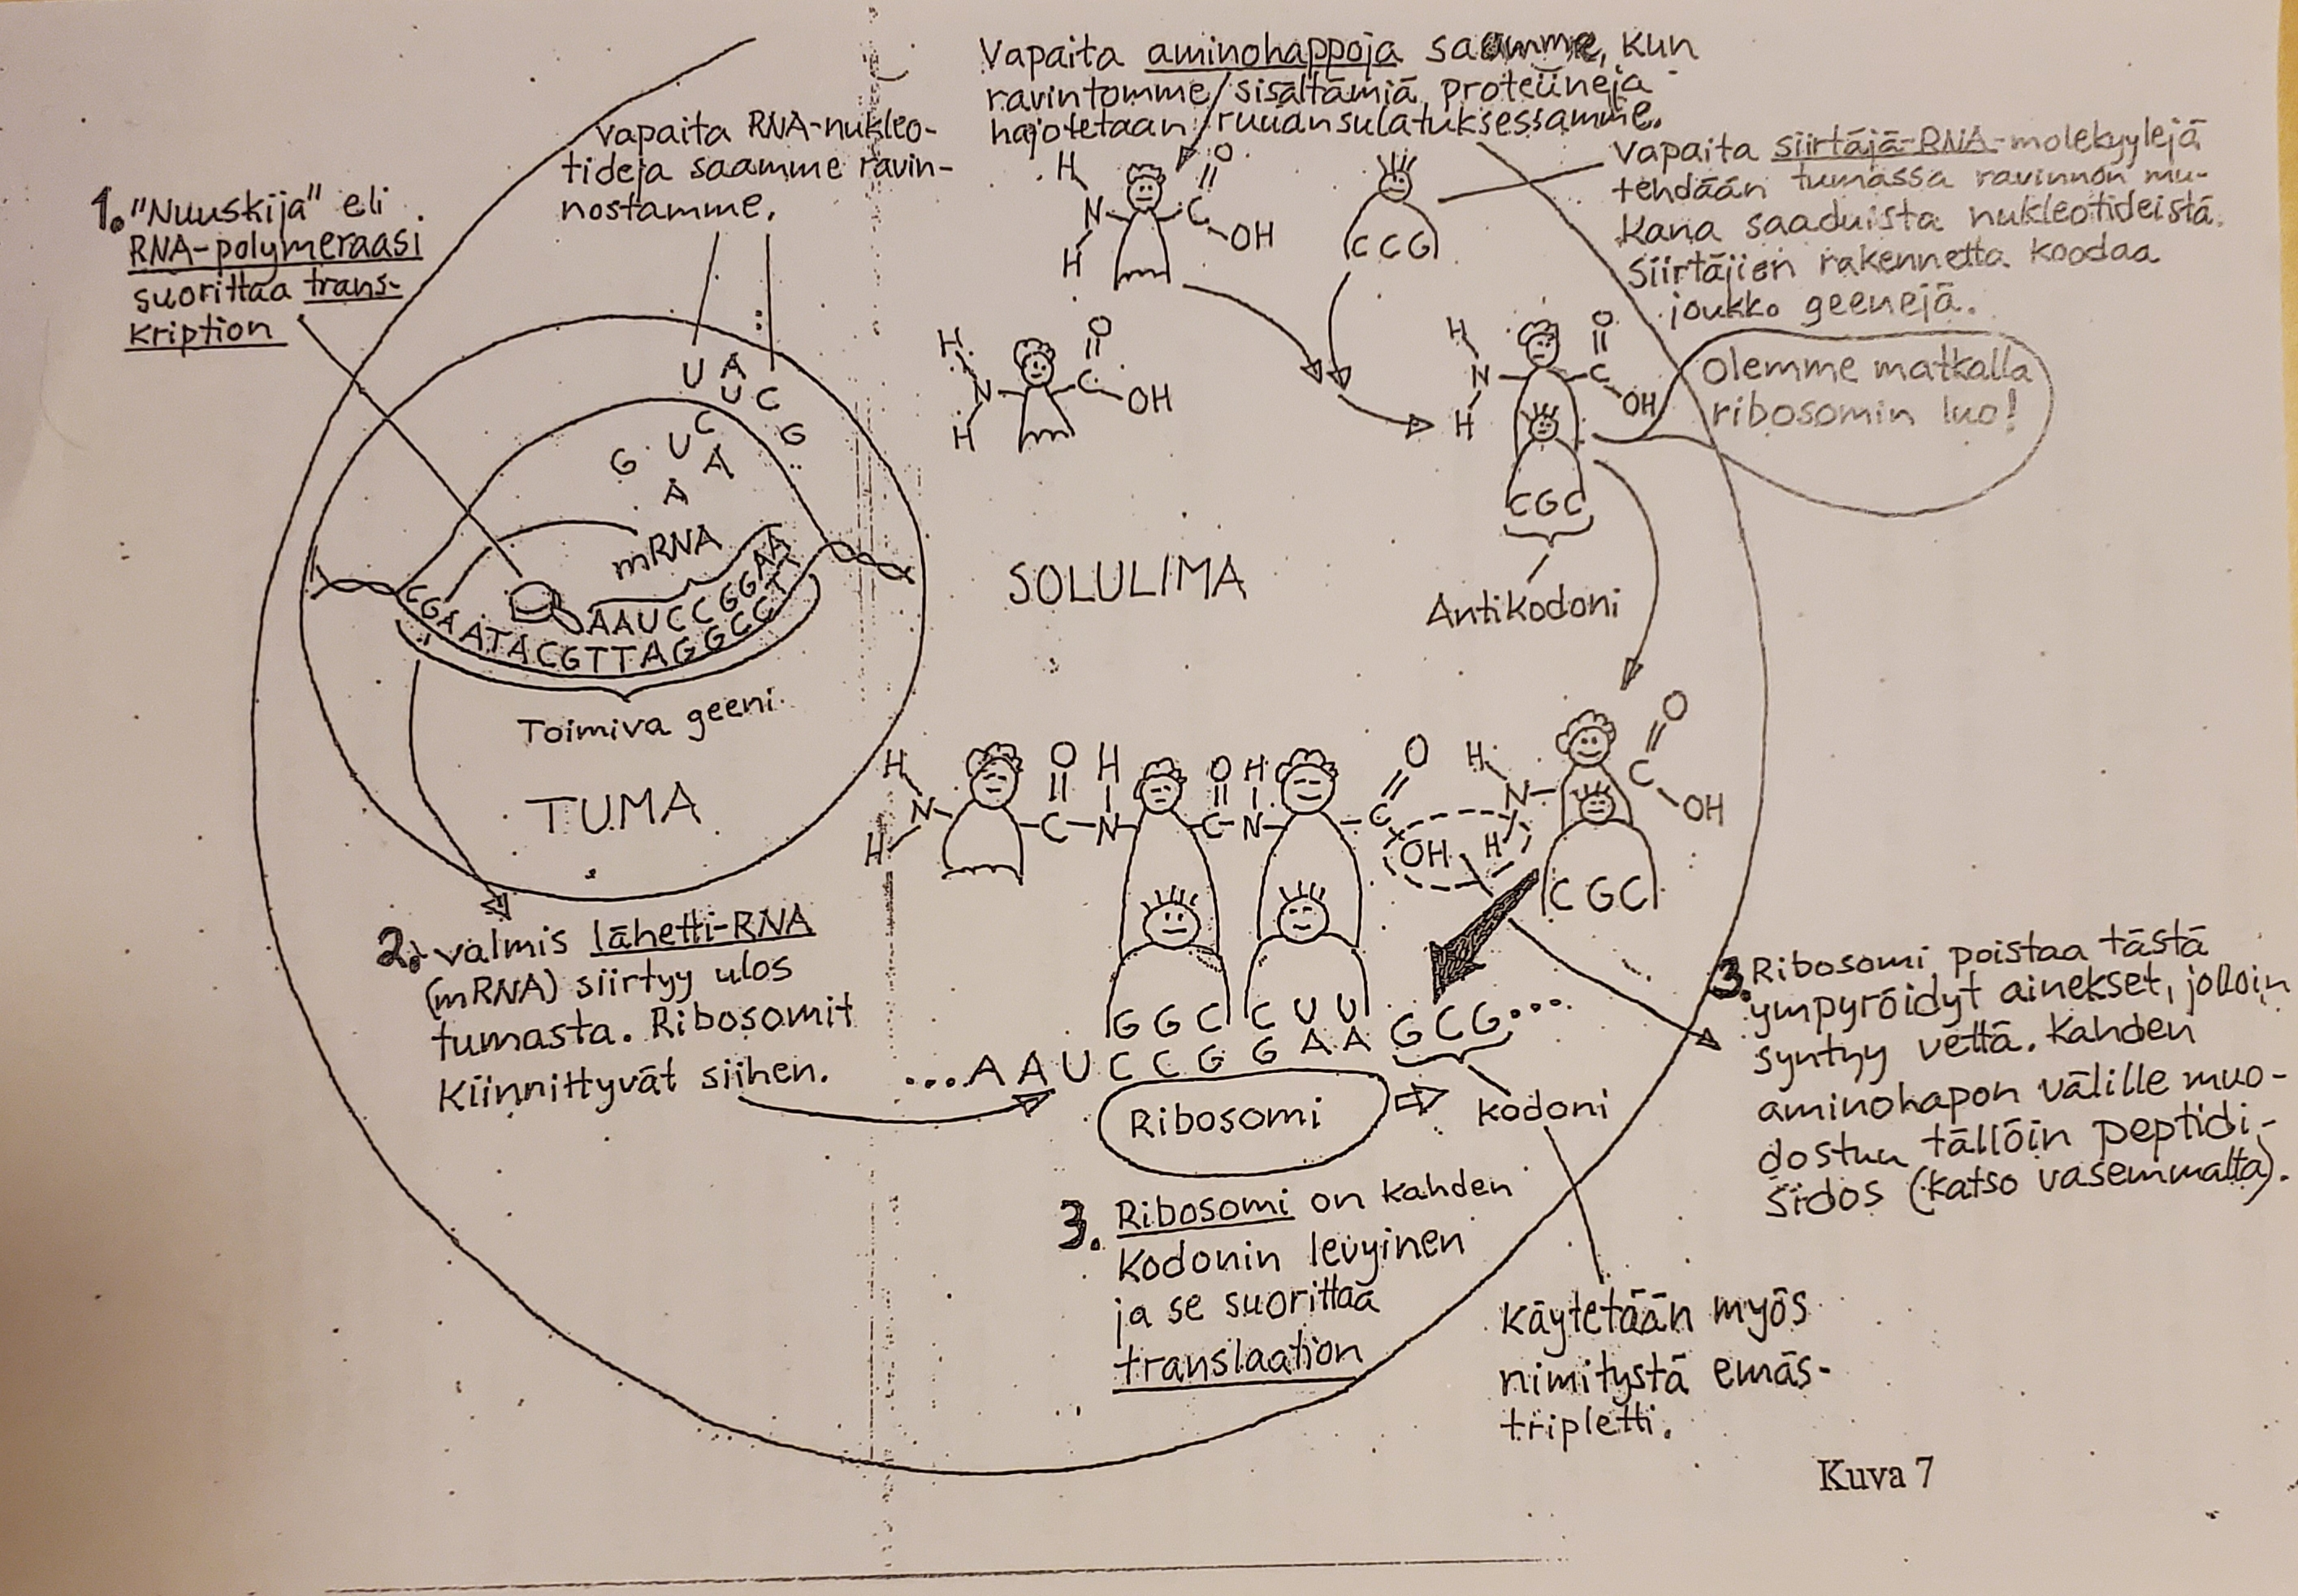 Vapaita aminohappoja saamme, kun
ravintomme sisältämiä proteiineja
hajotetaan ruuansulatuksessamme.
Vapaita RNA-nukleo-
tideja saamme ravin-
nostamme.
1. "Nuuskija" eli
RNA-polymeraasi
suorittaa trans-
kription
Vapaita siirtäjä-RNA-molekyylejä
tehdään tumassa ravinnon mu-
kana saaduista nukleotideistä.
Siirtäjien rakennetta koodaa
joukko geenejä.
H O
N C
H OH
C C G
H O
N C
H OH
H O
N C
H OH
CGC
Olemme matkalla
ribosomin luo!
Antikodoni
U A
U C
C
G U G
A
A
mRNA
AAUCCGGAA
CGAATACGTTAGGCCTT
Toimiva geeni
TUMA
SOLULIMA
H O H O H O H O
N C-N C-N C N C
H OH H OH
CGC
2. Valmis lähetti-RNA
(mRNA) siirtyy ulos
tumasta. Ribosomit
kiinnittyvät siihen.
GGC CUU
...AAUCCGGAAGCG...
Ribosomi
kodoni
3. Ribosomi poistaa tästä
ympyröidyt ainekset, jolloin
syntyy vettä. Kahden
aminohapon välille muo-
dostuu tällöin peptidi-
sidos (katso vasemmalta).
3. Ribosomi on kahden
kodonin levyinen
ja se suorittaa
translaation
Käytetään myös
nimitystä emäs-
tripletti.
Kuva 7